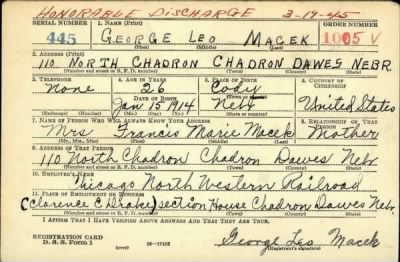 HONORABLE DISCHARGE 3-19-45
SERIAL NUMBER 1. NAME (Print) ORDER NUMBER
445 GEORGE LEO MACEK 1005 V
(First) (Middle) (Last)
2. ADDRESS (Print)
110 NORTH CHADRON CHADRON DAWES NEBR.
(Number and street or R. F. D. number) (Town) (County) (State)
3. TELEPHONE 4. AGE IN YEARS 5. PLACE OF BIRTH 6. COUNTRY OF CITIZENSHIP
None 26 Cody
DATE OF BIRTH
Jan 15 1914 Nebr United States
(Exchange) (Number) (Mo.) (Day) (Yr.) (State or country)
7. NAME OF PERSON WHO WILL ALWAYS KNOW YOUR ADDRESS 8. RELATIONSHIP OF THAT PERSON
Mrs Francis Marie Macek Mother
(Mr., Mrs., Miss) (First) (Middle) (Last)
9. ADDRESS OF THAT PERSON
110 North Chadron Chadron Dawes Nebr
(Number and street or R. F. D. number) (Town) (County) (State)
10. EMPLOYER'S NAME
Chicago North Western Railroad
11. PLACE OF EMPLOYMENT OR BUSINESS
(Clarence C Drake) section House Chadron Dawes Nebr.
(Number and street or R. F. D. number) (Town) (County) (State)
I AFFIRM THAT I HAVE VERIFIED ABOVE ANSWERS AND THAT THEY ARE TRUE.
REGISTRATION CARD
D. S. S. FORM 1 (over) 16-17105 George Leo Macek
(Registrant's signature)